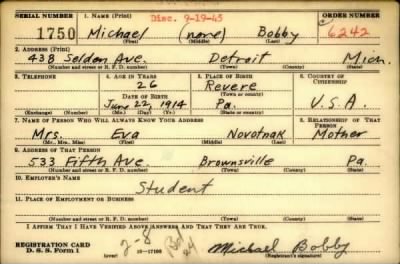 Disc. 9-19-45
SERIAL NUMBER 1. NAME (Print) ORDER NUMBER
1750 Michael (none) Bobby 6242
(First) (Middle) (Last)
2. ADDRESS (Print)
438 Selden Ave. Detroit Mich.
(Number and street or R. F. D. number) (Town) (County) (State)
3. TELEPHONE 4. AGE IN YEARS 5. PLACE OF BIRTH 6. COUNTRY OF CITIZENSHIP
26 Revere
DATE OF BIRTH (Town or county)
June 22, 1914 Pa. U.S.A.
(Exchange) (Number) (Mo.) (Day) (Yr.) (State or country)
7. NAME OF PERSON WHO WILL ALWAYS KNOW YOUR ADDRESS 8. RELATIONSHIP OF THAT PERSON
Mrs. Eva Novotnak Mother
(Mr., Mrs., Miss) (First) (Middle) (Last)
9. ADDRESS OF THAT PERSON
533 Fifth Ave. Brownsville Pa.
(Number and street or R. F. D. number) (Town) (County) (State)
10. EMPLOYER'S NAME
Student
11. PLACE OF EMPLOYMENT OR BUSINESS
(Number and street or R. F. D. number) (Town) (County) (State)
I AFFIRM THAT I HAVE VERIFIED ABOVE ANSWERS AND THAT THEY ARE TRUE.
REGISTRATION CARD
D. S. S. Form 1 (over) Michael Bobby
(Registrant's signature)